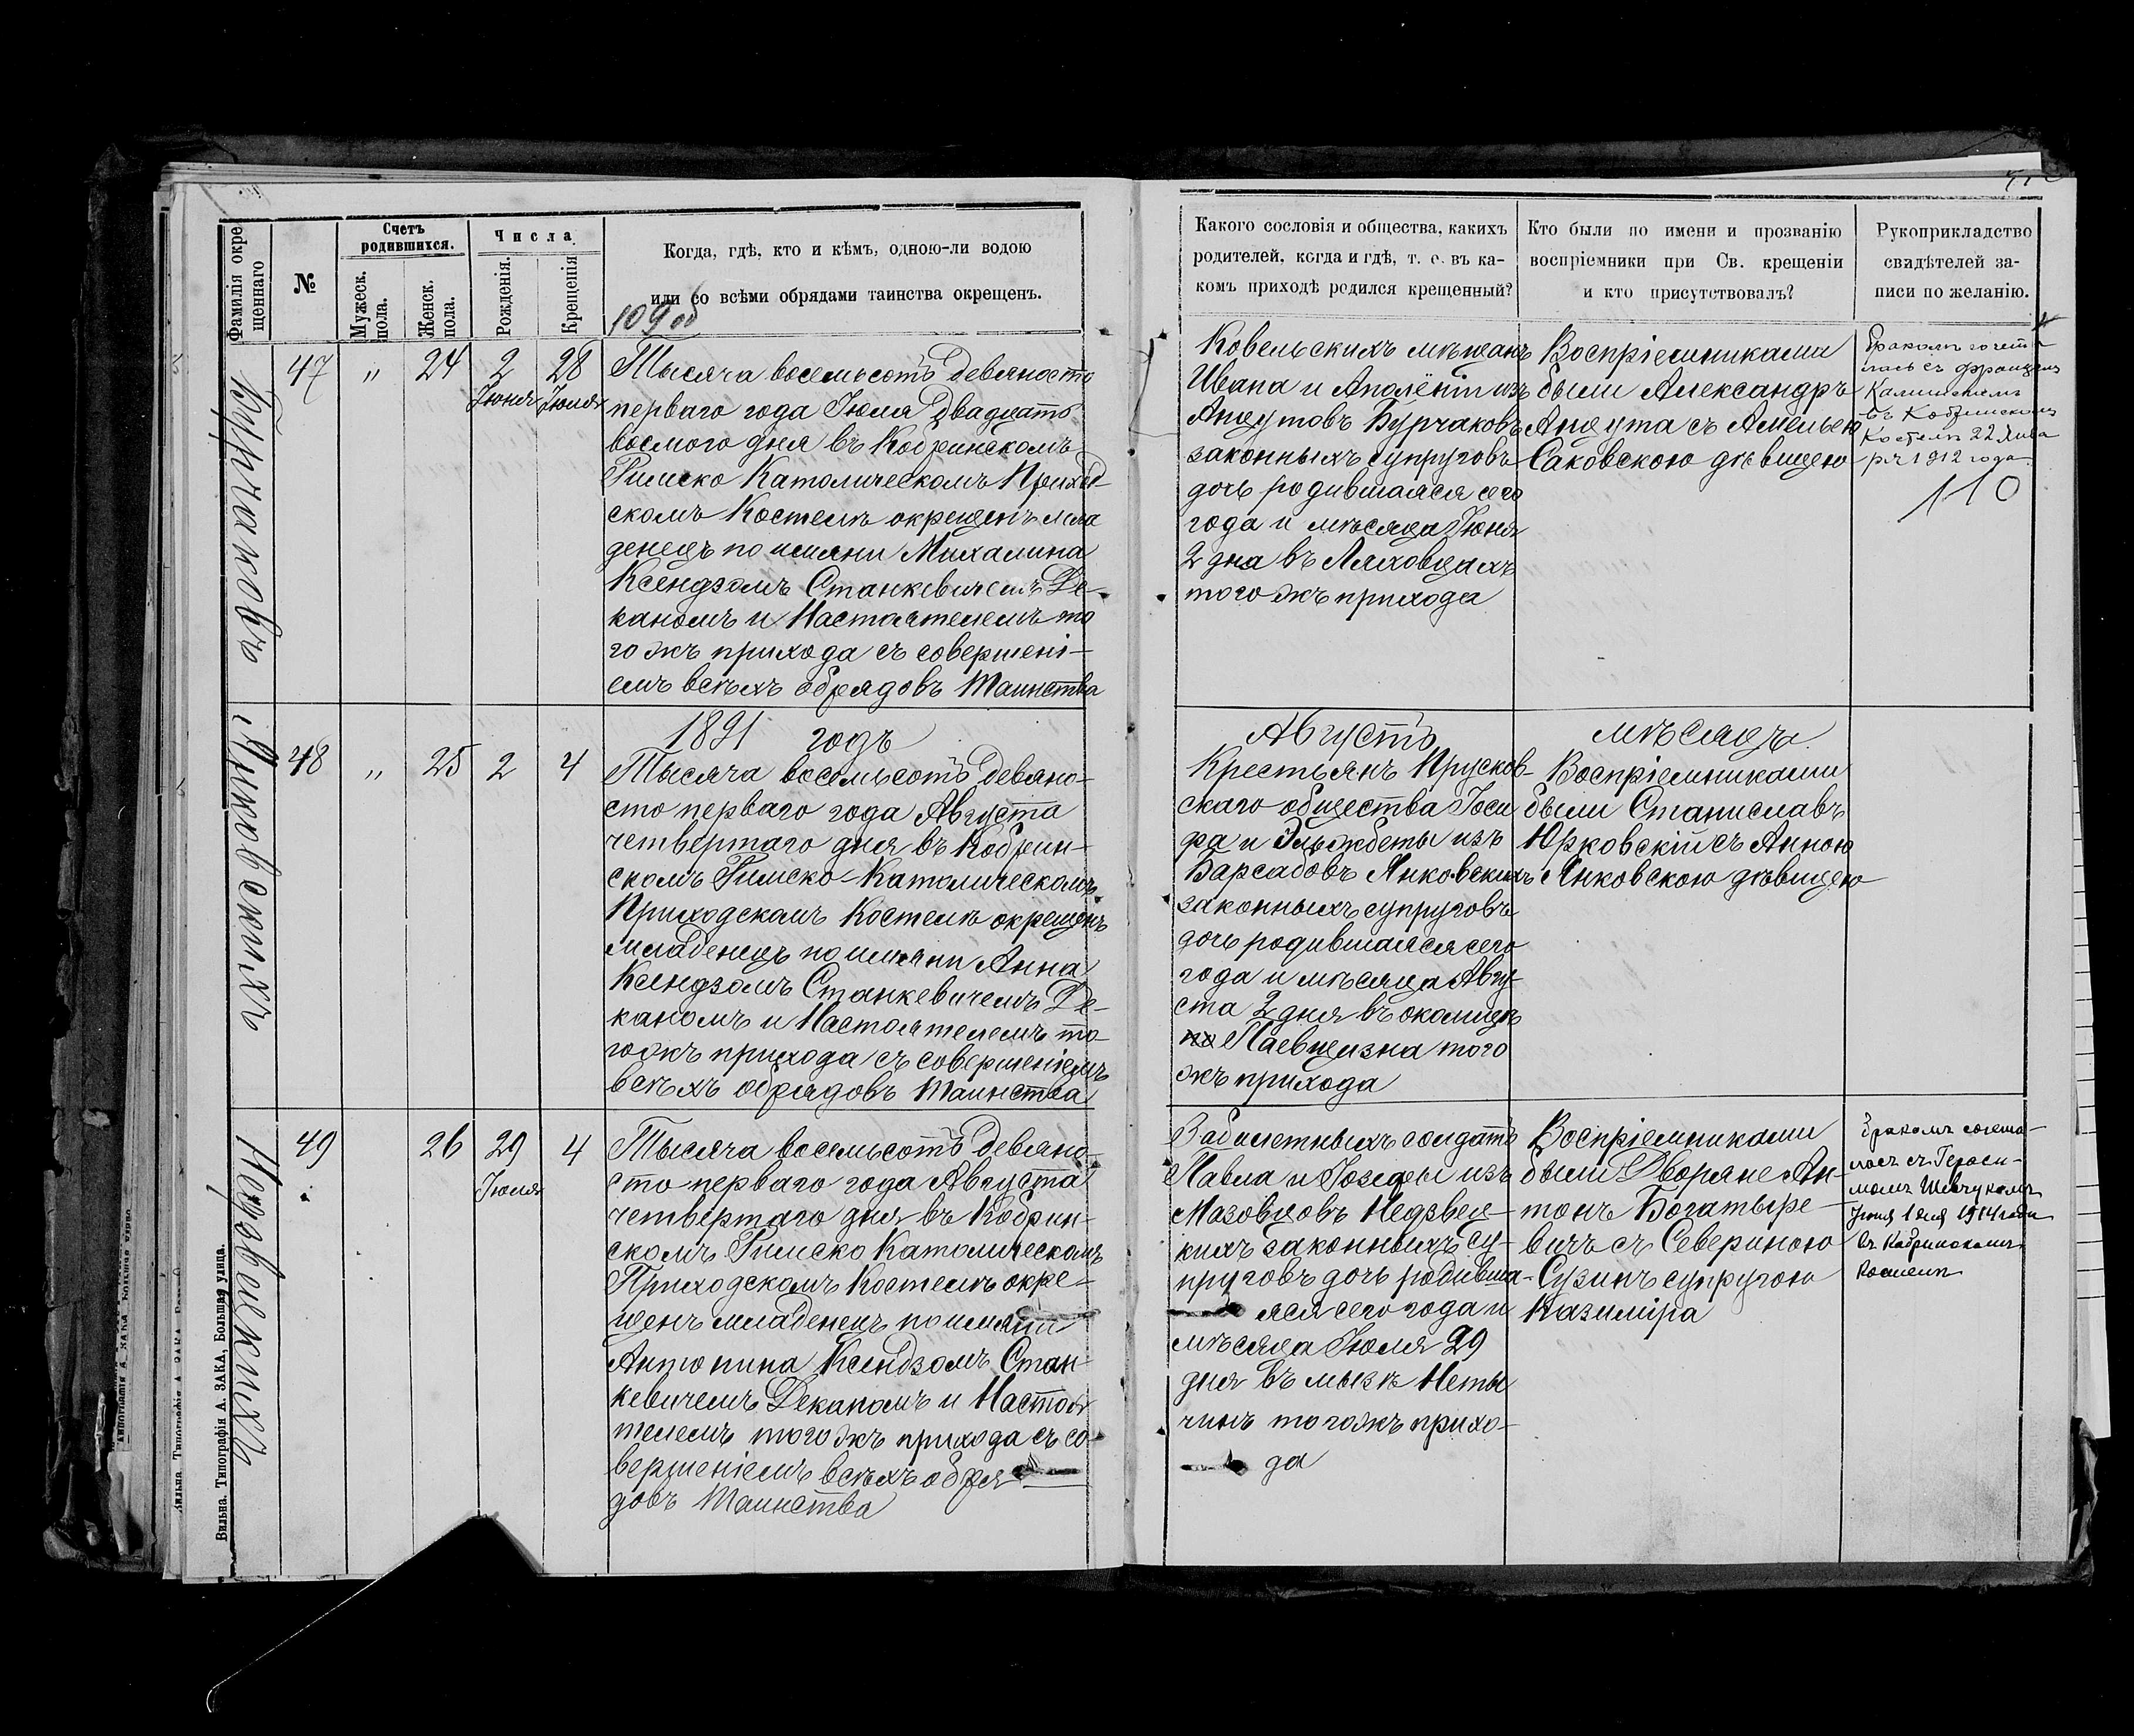 Фамилія окре
щеннаго
№
Счетъ
родившихся.
Мужеск.
пола.
Женск.
пола.
Числа
Рожденія.
Крещенія
Когда, гдѣ, кто и кѣмъ, одною-ли водою
или со всѣми обрядами таинства окрещенъ.
109 об
Бурчаковъ
47 " 24 2 28
Іюня Іюля
Тысяча восемьсотъ девяносто
перваго года Іюля двадцать
восмого дня въ Кобринскомъ
Римско Католическомъ Приход-
скомъ Костелѣ окрещенъ мла
денецъ по имяни Михалина
Ксендзомъ Станкевичемъ Де-
каномъ и Настоятелемъ то
го жъ прихода съ совершені-
емъ всѣхъ обрядовъ Таинства
1891 годъ
Янковскихъ
48 " 25 2 4
Тысяча восемьсотъ девяно-
сто перваго года Августа
четвертаго дня въ Кобрин-
скомъ Римско-Католическомъ
Приходскомъ Костелѣ окрещенъ
младенецъ по имяни Анна
Ксендзомъ Станкевичемъ Де-
каномъ и Настоятелемъ то-
гожъ прихода съ совершеніемъ
всѣхъ обрядовъ Таинства
Недзвецкихъ
49 26 29 4
Іюля
Тысяча восемьсотъ девяно-
сто перваго года Августа
четвертаго дня въ Кобрин-
скомъ Римско Католическомъ
Приходскомъ Костелѣ окре-
щенъ младенецъ по имяни
Антонина Ксендзомъ Стан-
кевичемъ Деканомъ и Настоя
телемъ того жъ прихода съ со-
вершеніемъ всѣхъ обря
довъ Таинства
Вильна. Типографія А. ЗАКА, Большая улица.
Какого сословія и общества, какихъ
родителей, когда и гдѣ, т. е. въ ка-
комъ приходѣ родился крещенный?
Кто были по имени и прозванію
воспріемники при Св. крещеніи
и кто присутствовалъ?
Рукоприкладство
свидѣтелей за-
писи по желанію.
Ковельскихъ мѣщанъ
Ивана и Аполёніи изъ
Анцутовъ Бурчаковъ
законныхъ супруговъ
дочь родившаяся сего
года и мѣсяца Іюня
2 дна въ Ляховцахъ
того жъ прихода
Воспріемниками
были Александръ
Анцута съ Амельею
Саковскою дѣвицею
Бракомъ сочета
лась съ Францемъ
въ Кобринскомъ
Костелѣ 22 Янва
ря 1912 года
110
Августъ мѣсяцъ.
Крестьянъ Прусков-
скаго общества Іоси
фа и Эльжбеты изъ
Барсабовъ Янковскихъ
законныхъ супруговъ
дочь родившаяся сего
года и мѣсяца Авгу-
ста 2 дня въ околицѣ
Паевщизна того
жъ прихода
Воспріемниками
были Станиславъ
Юрковскій съ Анною
Янковскою дѣвицею
Забилетныхъ солдатъ
Павла и Іозефы изъ
Мазовцовъ Недзвец-
кихъ законныхъ су-
пруговъ дочь родивша-
яся сего года и
мѣсяца Іюля 29
дня въ мызѣ Неты
чинъ тогожъ прихо-
да
Воспріемниками
были Дворяне Ан-
тонъ Богатыре-
вичъ съ Севериною
Сузинъ супругою
Казиміра
Бракомъ сочета-
лась съ Гераси-
момъ Шевчукомъ
Іюня 1 дня 1914 года
въ Кобринскомъ
Костелѣ